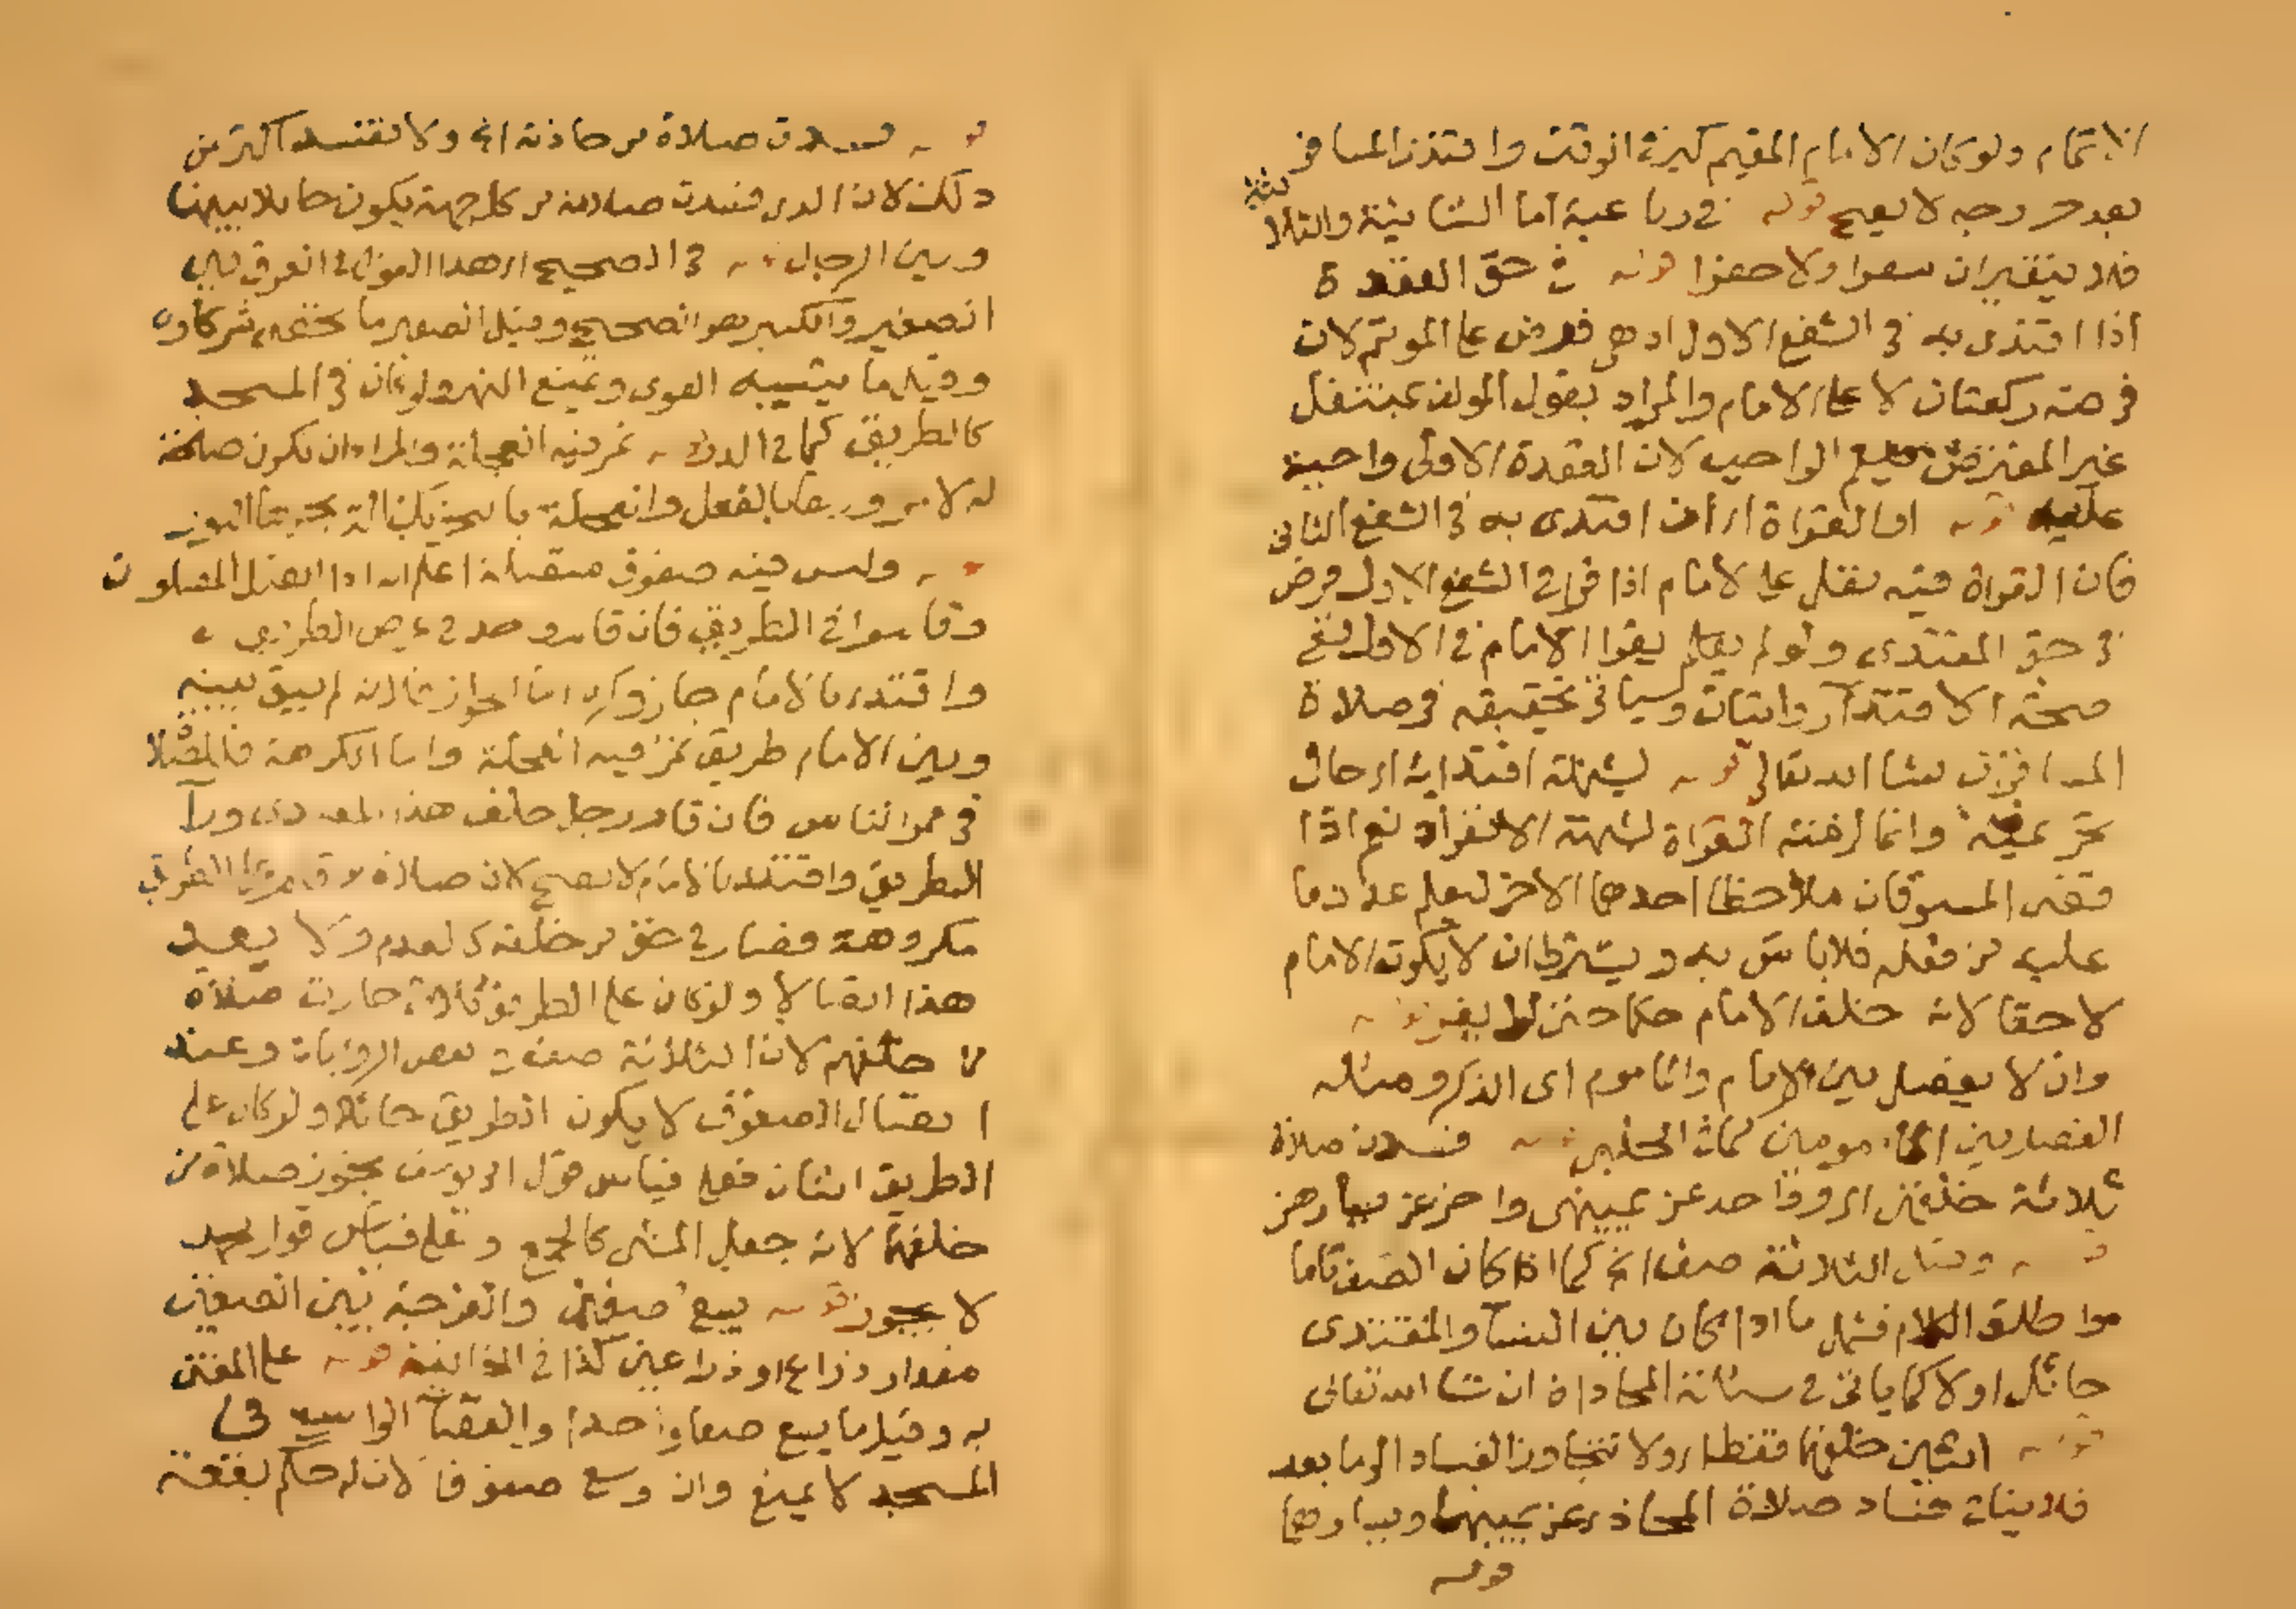 الاتمام ولو كان الامام المقيم كبر في الوقت واقتدى المسافر
بعد خروجه لا يصح قوله في رباعية اما الثنائية والثلاثية
فلا يتغيران سفرا ولا حضرا قوله في حق القعدة
اذا اقتدى به في الشفع الاول اذ هي فرض على الموتم لان
فرضه ركعتان لا على الامام والمراد بقول المولف بمتنفل
غير المفترض الواجب لان القعدة الاولى واجبة
عليه قوله او القراة اي ان اقتدى به في الشفع الثاني
فان القراة فيه نفل على الامام اذا قرا في الشفع الاول فرض
في حق المقتدى ولو لم يقرا الامام في الاول ففي
صحة الاقتدآ روايتان وسياتي تحقيقه في صلاة
المسافر ان شا الله تعالى قوله لشبهة اقتدايه اي حال
وانما لزمته القراة لشبهة الانفراد نعم اذا
قضى المسبوقان ملاحظا احدهما الاخر ليعلم عدد ما
عليه من فعله فلا باس به ويشترط ان لا يكون الامام
لاحقا لانه خلف الامام حكما حتى لا يقرا قوله
وان لا يفصل بين الامام والماموم اى الذكر ومثله
الفصل بين المامومين كما في الحلبي قوله فسدت صلاة
ثلاثة خلفهن اي وواحد عن يمينهن واخر عن يسارهن
قوله وقيل الثلاثة صف الخ كما اذا كان الصف تاما
واطلق الكلام فشمل ما اذا كان بين النسآ والمقتدى
حائل اولا كما ياتى في مسئلة المحاداة ان شا الله تعالى
قوله اثنين خلفهما فقط اي ولا تتجاوز الفساد الى ما بعد
فلا ينافي فساد صلاة المحاذي عن يمينهما ويسارهما
قوله
قوله فسدت صلاة من حاذته الخ ولا تفسد اكثر من
ذلك لان الذي فسدت صلاته من كل جهة يكون حائلا بينها
وبين الرجال قوله في الصحيح اي هذا القول في الفرق بين
الصغير والكبير هو الصحيح وقيل الصغير ما تحصى شركاوه
وقيل ما يثبته القوى ويمنع النهر ولو كان في المسجد
كالطريق كما في الدر قوله تمر فيه العجلة والمراد ان تكون صالحة
له لا مرورها بالفعل والعجلة بالتحريك التي يجرها الثور
قوله وليس فيه صفوف متصلة اعلم انه اذا اتصل المصلون
وقاموا في الطريق فان قام واحد في عرض الطريق
واقتدى بالامام جاز وكره اما الجواز فلانه لم يبق بينه
وبين الامام طريق تمر فيه العجلة واما الكراهة فللصلاة
في ممر الناس فان قام رجل خلف هذا المقتدى ورآ
الطريق واقتدى بالامام لا يصح لان صلاة من قام على الطريق
مكروهة فصار في حق من خلفه كالعدم ولا يعد
هذا اتصالا ولو كان على الطريق ثلاثة جازت صلاة
من خلفهم لان الثلاثة صف في بعض الروايات وعند
اتصال الصفوف لا يكون الطريق حائلا ولو كان على
الطريق اثنان فعلى قياس قول ابي يوسف يجوز صلاة من
خلفهما لانه جعل المثنى كالجمع وعلى قياس قول محمد
لا يجوز قوله يسع صفين والفرجة بين الصفين
مقدار ذراع او ذراعين كذا في الخانية قوله على المفتى
به وقيل ما يسع صفا واحدا والفضآ الواسع في
المسجد لا يمنع وان وسع صفوفا لان له حكم بقعة